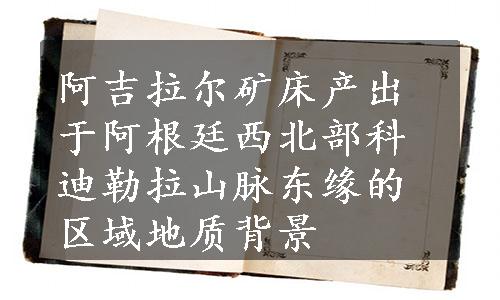 阿吉拉尔矿床产出
于阿根廷西北部科
迪勒拉山脉东缘的
区域地质背景